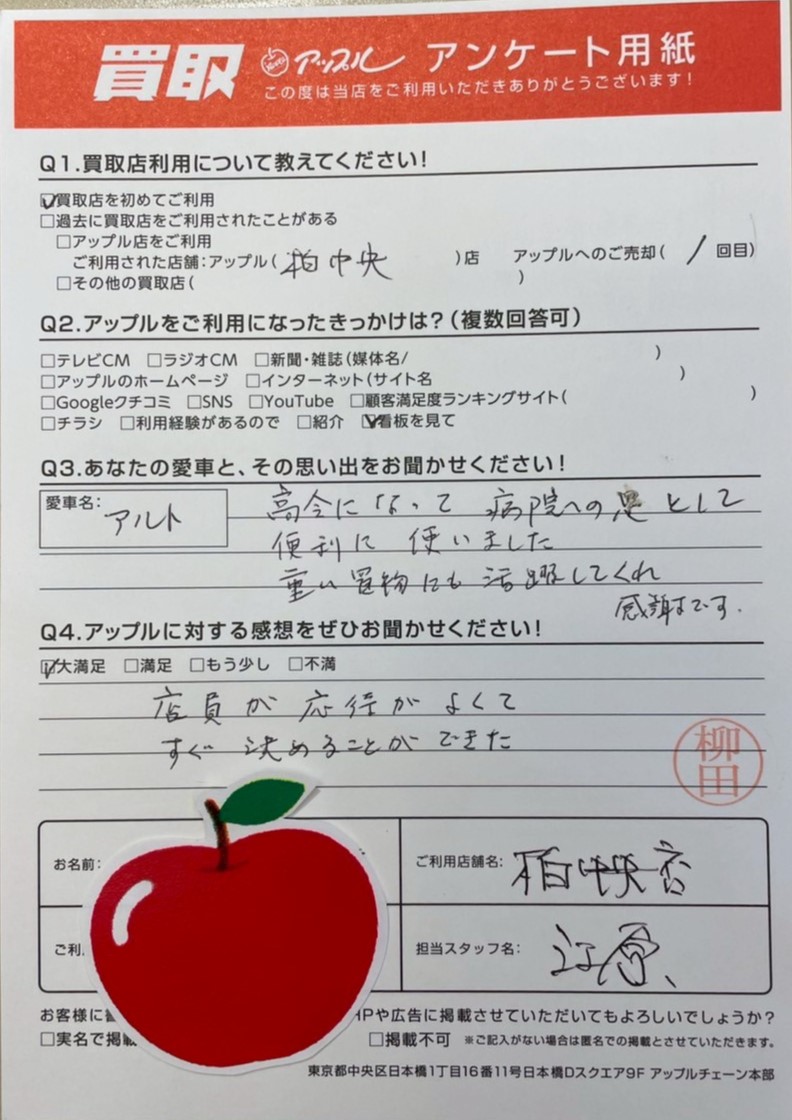 買取 アップル アンケート用紙
この度は当店をご利用いただきありがとうございます！
Q1.買取店利用について教えてください！
☑買取店を初めてご利用
□過去に買取店をご利用されたことがある
□アップル店をご利用
ご利用された店舗：アップル（柏中央）店 アップルへのご売却（/回目）
□その他の買取店（ ）
Q2.アップルをご利用になったきっかけは？（複数回答可）
□テレビCM □ラジオCM □新聞・雑誌（媒体名/ ）
□アップルのホームページ □インターネット（サイト名 ）
□Googleクチコミ □SNS □YouTube □顧客満足度ランキングサイト（ ）
□チラシ □利用経験があるので □紹介 ☑看板を見て
Q3.あなたの愛車と、その思い出をお聞かせください！
愛車名：アルト
高令になって 病院への足として
便利に 使いました
重い置物にも 活躍してくれ
感謝です.
Q4.アップルに対する感想をぜひお聞かせください！
☑大満足 □満足 □もう少し □不満
店員が 応待が よくて
すぐ 決めることが できた
柳田
お名前：
ご利用店舗名：柏中央店
ご利
担当スタッフ名：江原
お客様に HPや広告に掲載させていただいてもよろしいでしょうか？
□実名で掲載 □掲載不可 ※ご記入がない場合は匿名での掲載とさせていただきます。
東京都中央区日本橋1丁目16番11号日本橋Dスクエア9F アップルチェーン本部